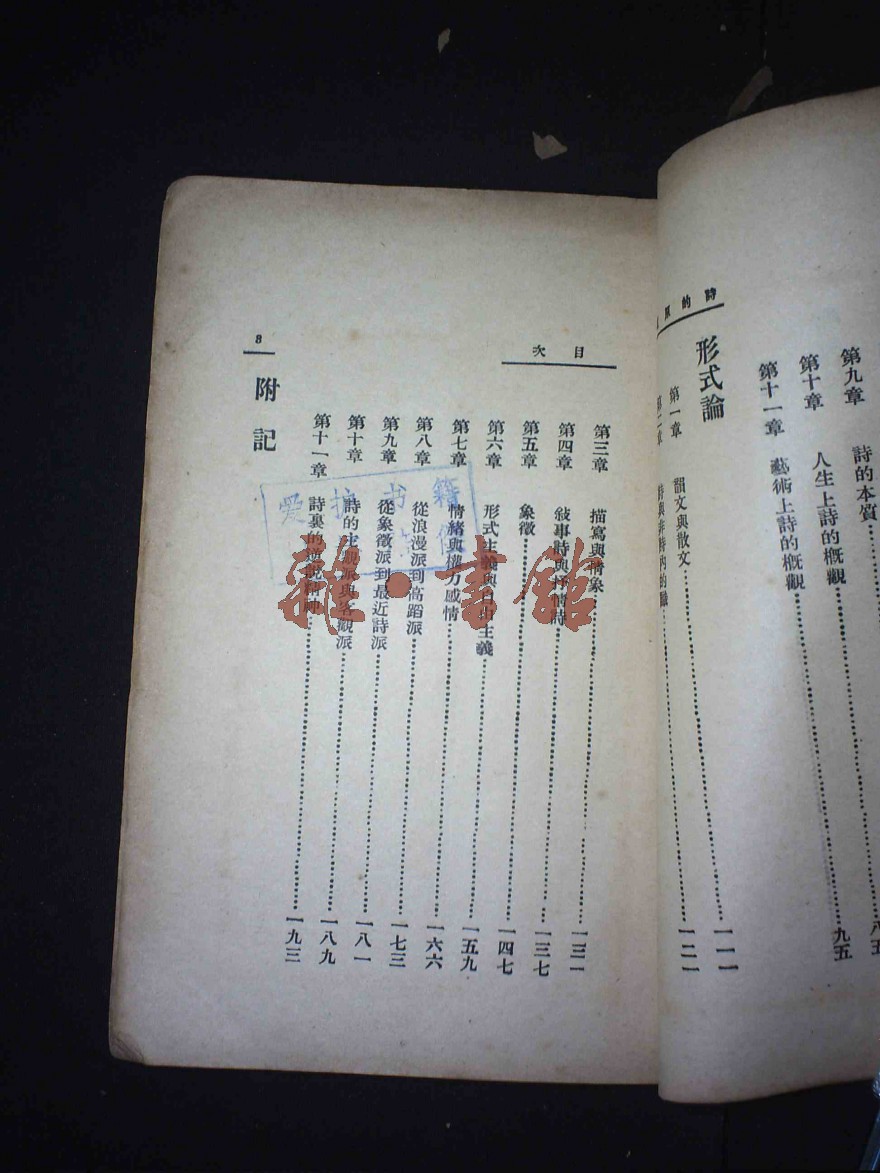 詩的原
第九章 詩的本質………八五
第十章 人生上詩的概觀………九五
第十一章 藝術上詩的概觀………
形式論
第一章 韻文與散文………一一一
第二章 詩與非詩內的………一二一
目次
第三章 描寫與情象………一三一
第四章 敍事詩與抒情詩………一三七
第五章 象徵………一四七
第六章 形式主義與自由主義………一五九
第七章 情緒與權力感情………一六六
第八章 從浪漫派到高蹈派………一七三
第九章 從象徵派到最近詩派………一八一
第十章 詩的主觀派與客觀派………一八九
第十一章 詩裏的逆說精神………一九三
附記
8
爱护书籍
雜·書館